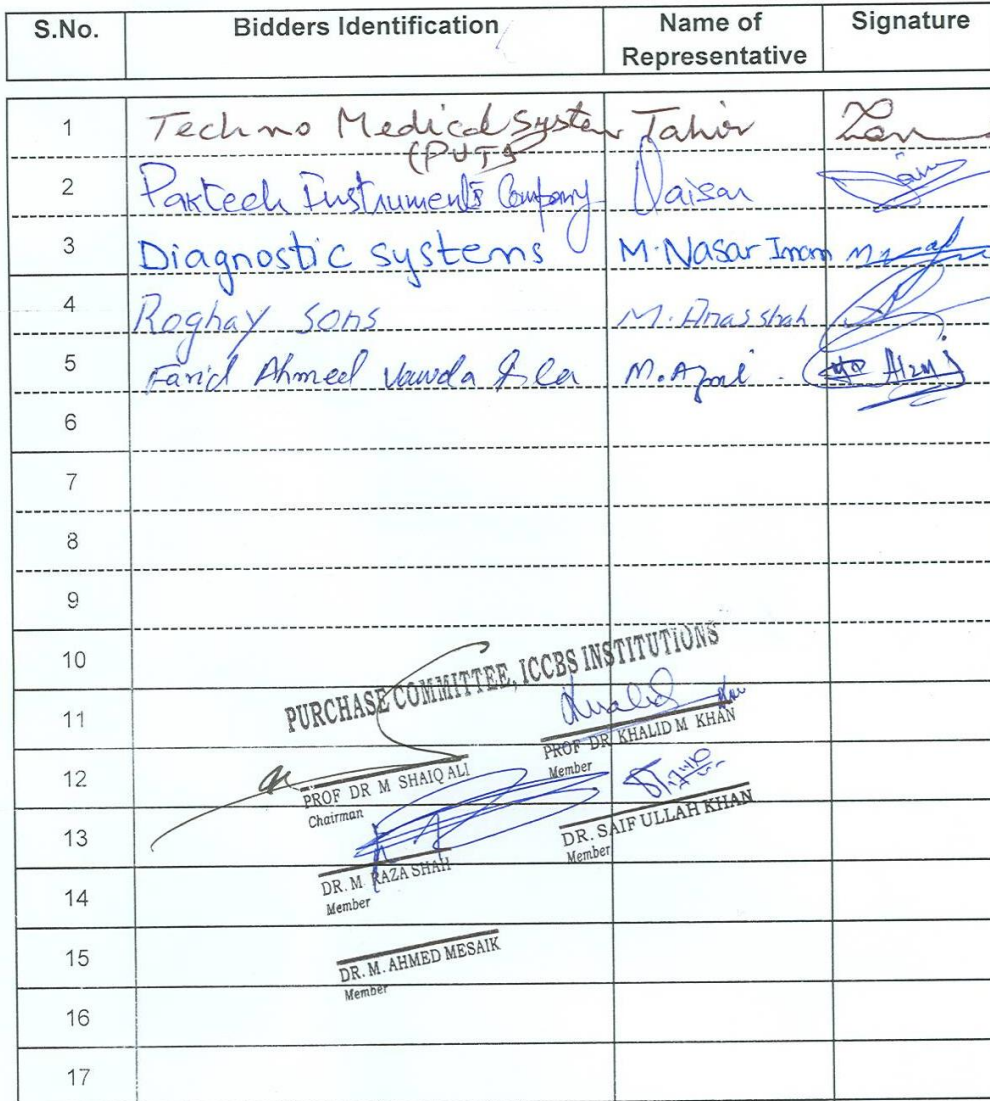 S.No. Bidders Identification Name of Representative Signature
1 Techno Medical System Tahir
(PVT)
2 Pakteech Instruments Company Qaisar
3 Diagnostic systems M. Nasar Imam
4 Roghay sons M. Anas shah
5 Farid Ahmed Vawda & M. Azmi
6
7
8
9
10
PURCHASE COMMITTEE, ICCBS INSTITUTIONS
11 Khalid
PROF DR KHALID M KHAN
Member
12
PROF DR M SHAIQ ALI
Chairman
13
DR. SAIF ULLAH KHAN
Member
DR. M RAZA SHAH
Member
14
15
DR. M. AHMED MESAIK
Member
16
17